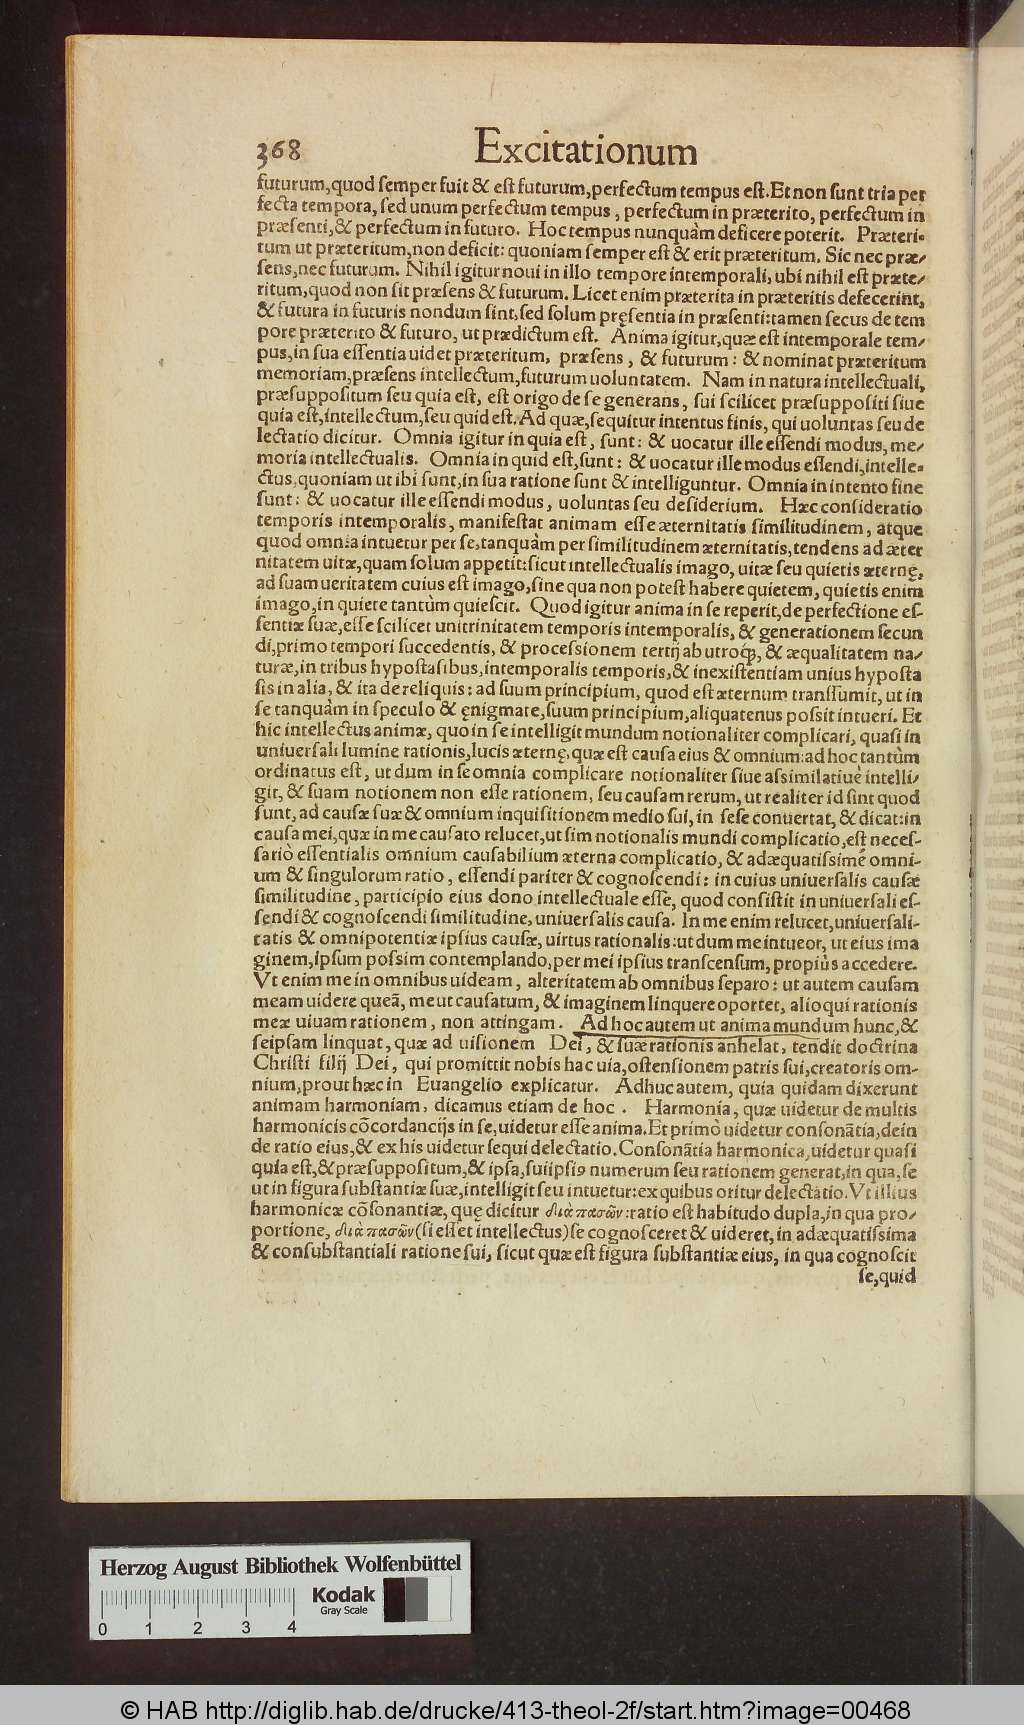 368 Excitationum
futurum, quod semper fuit & est futurum, perfectum tempus est. Et non sunt tria per
fecta tempora, sed unum perfectum tempus, perfectum in præterito, perfectum in
præsenti, & perfectum in futuro. Hoc tempus nunquàm deficere poterit. Præteri-
tum ut præteritum, non deficit: quoniam semper est & erit præteritum. Sic nec præ-
sens, nec futurum. Nihil igitur noui in illo tempore intemporali, ubi nihil est præte-
ritum, quod non sit præsens & futurum. Licet enim præterita in præteritis defecerint,
& futura in futuris nondum sint, sed solum pręsentia in præsenti: tamen secus de tem
pore præterito & futuro, ut prædictum est. Anima igitur, quæ est intemporale tem-
pus, in sua essentia uidet præteritum, præsens, & futurum: & nominat præteritum
memoriam, præsens intellectum, futurum uoluntatem. Nam in natura intellectuali,
præsuppositum seu quia est, est origo de se generans, sui scilicet præsuppositi siue
quia est, intellectum, seu quid est. Ad quæ, sequitur intentus finis, qui uoluntas seu de
lectatio dicitur. Omnia igitur in quia est, sunt: & uocatur ille essendi modus, me-
moria intellectualis. Omnia in quid est, sunt: & uocatur ille modus essendi, intelle-
ctus, quoniam ut ibi sunt, in sua ratione sunt & intelliguntur. Omnia in intento fine
sunt: & uocatur ille essendi modus, uoluntas seu desiderium. Hæc consideratio
temporis intemporalis, manifestat animam esse æternitatis similitudinem, atque
quod omnia intuetur per se, tanquàm per similitudinem æternitatis, tendens ad æter
nitatem uitæ, quam solum appetit: sicut intellectualis imago, uitæ seu quietis æternę,
ad suam ueritatem cuius est imago, sine qua non potest habere quietem, quietis enim
imago, in quiete tantùm quiescit. Quod igitur anima in se reperit, de perfectione es-
sentiæ suæ, esse scilicet unitrinitatem temporis intemporalis, & generationem secun
di, primo tempori succedentis, & processionem tertij ab utroq;, & æqualitatem na-
turæ, in tribus hypostasibus, intemporalis temporis, & inexistentiam unius hyposta
sis in alia, & ita de reliquis: ad suum principium, quod est æternum transsumit, ut in
se tanquàm in speculo & ęnigmate, suum principium, aliquatenus possit intueri. Et
hic intellectus animæ, quo in se intelligit mundum notionaliter complicari, quasi in
uniuersali lumine rationis, lucis æternę, quæ est causa eius & omnium: ad hoc tantùm
ordinatus est, ut dum in se omnia complicare notionaliter siue assimilatiuè intelli-
git, & suam notionem non esse rationem, seu causam rerum, ut realiter id sint quod
sunt, ad causæ suæ & omnium inquisitionem medio sui, in sese conuertat, & dicat: in
causa mei, quæ in me causato relucet, ut sim notionalis mundi complicatio, est neces-
sariò essentialis omnium causabilium æterna complicatio, & adæquatissimé omni-
um & singulorum ratio, essendi pariter & cognoscendi: in cuius uniuersalis causæ
similitudine, participio eius dono intellectuale esse, quod consistit in uniuersali es-
sendi & cognoscendi similitudine, uniuersalis causa. In me enim relucet, uniuersali-
tatis & omnipotentiæ ipsius causæ, uirtus rationalis: ut dum me intueor, ut eius ima
ginem, ipsum possim contemplando, per mei ipsius transcensum, propiùs accedere.
Vt enim me in omnibus uideam, alteritatem ab omnibus separo: ut autem causam
meam uidere queā, me ut causatum, & imaginem linquere oportet, alioqui rationis
meæ uiuam rationem, non attingam. Ad hoc autem ut anima mundum hunc, &
seipsam linquat, quæ ad uisionem Dei, & suæ rationis anhelat, tendit doctrina
Christi filij Dei, qui promittit nobis hac uia, ostensionem patris sui, creatoris om-
nium, prout hæc in Euangelio explicatur. Adhuc autem, quia quidam dixerunt
animam harmoniam, dicamus etiam de hoc. Harmonia, quæ uidetur de multis
harmonicis cōcordancijs in se, uidetur esse anima. Et primò uidetur consonātia, dein
de ratio eius, & ex his uidetur sequi delectatio. Consonātia harmonica, uidetur quasi
quia est, & præsuppositum, & ipsa, suiipsiꝰ numerum seu rationem generat, in qua, se
ut in figura substantiæ suæ, intelligit seu intuetur: ex quibus oritur delectatio. Vt illius
harmonicæ cōsonantiæ, quę dicitur διὰ πασῶν: ratio est habitudo dupla, in qua pro-
portione, διὰ πασῶν (si esset intellectus) se cognosceret & uideret, in adæquatissima
& consubstantiali ratione sui, sicut quæ est figura substantiæ eius, in qua cognoscit
se, quid
Herzog August Bibliothek Wolfenbüttel
Kodak
Gray Scale
0 1 2 3 4
© HAB http://diglib.hab.de/drucke/413-theol-2f/start.htm?image=00468